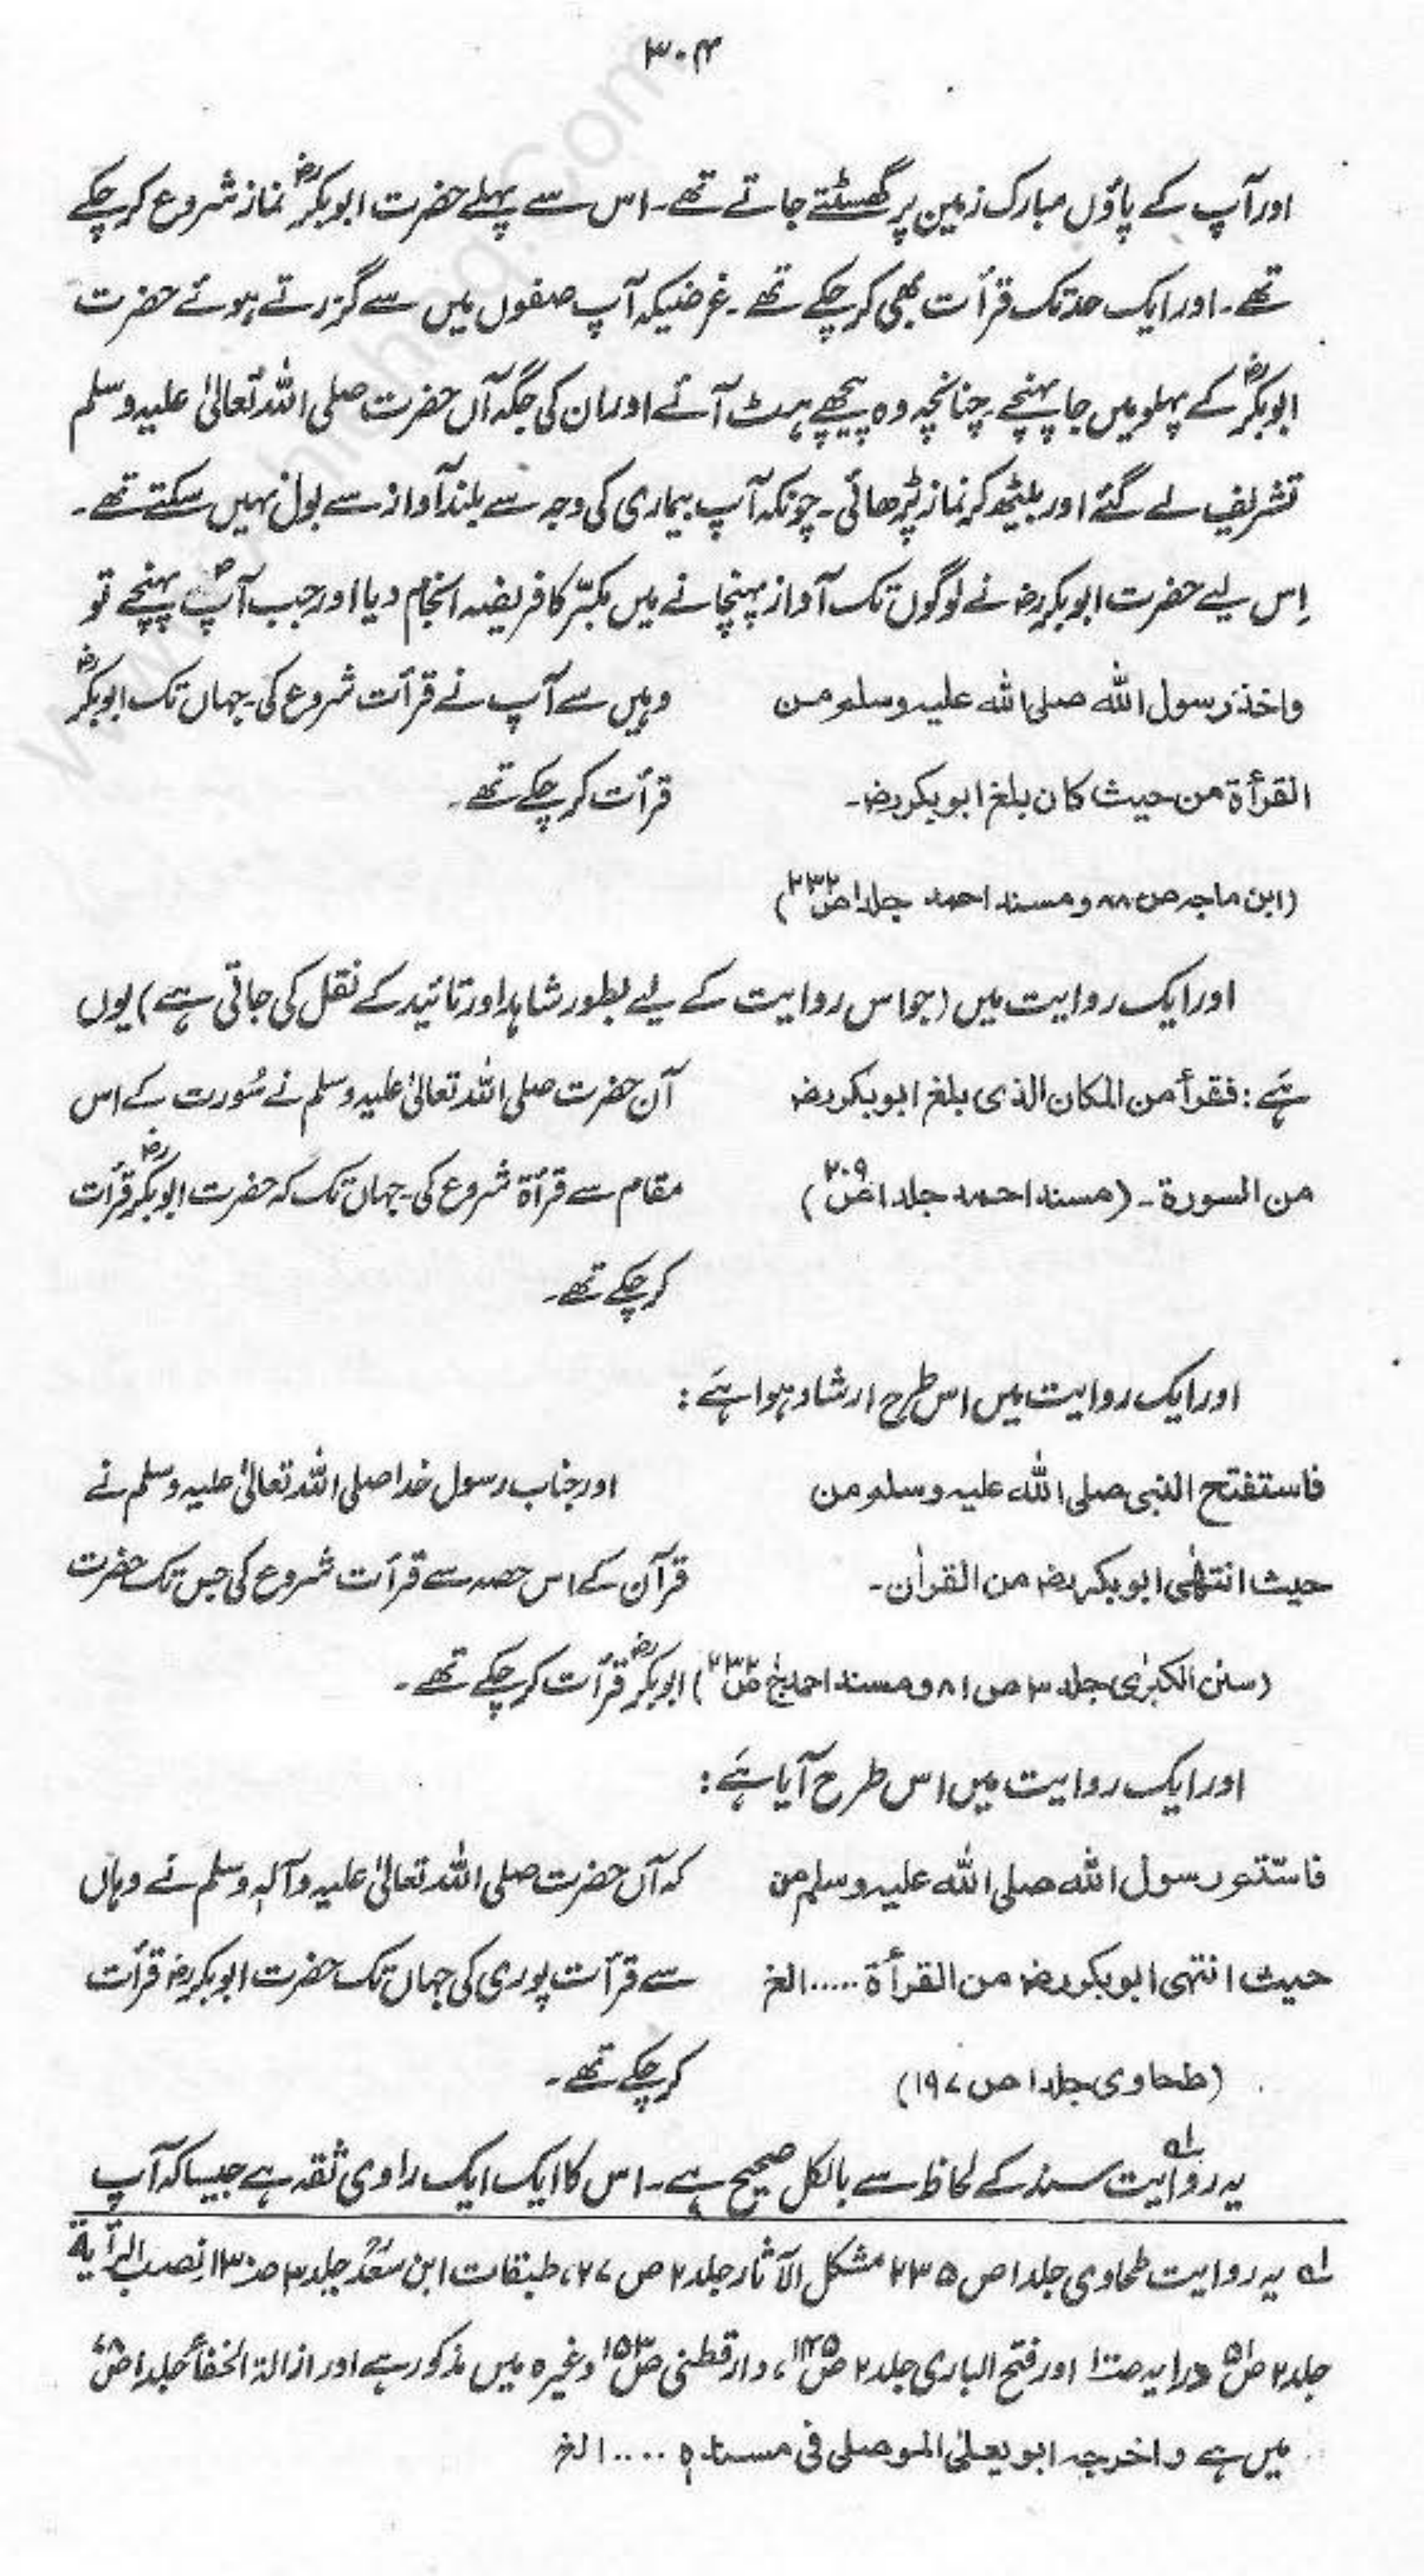 ۳۰۴
اور آپ کے پاؤں مبارک زمین پر گھسٹتے جاتے تھے۔ اس سے پہلے حضرت ابوبکرؓ نماز شروع کر چکے
تھے۔ اور ایک حد تک قرأت بھی کر چکے تھے۔ غرضیکہ آپ صفوں میں سے گزرتے ہوئے حضرت
ابوبکرؓ کے پہلو میں جا پہنچے۔ چنانچہ وہ پیچھے ہٹ آئے اور ان کی جگہ آں حضرت صلی اللہ تعالیٰ علیہ وسلم
تشریف لے گئے اور بیٹھ کر نماز پڑھائی۔ چونکہ آپ بیماری کی وجہ سے بلند آواز سے بول نہیں سکتے تھے۔
اِس لیے حضرت ابوبکرؓ نے لوگوں تک آواز پہنچانے میں مکبّر کا فریضہ انجام دیا اور جب آپؐ پہنچے تو
واخذ رسول اللہ صلی اللہ علیہ وسلم من
القرأة من حیث کان بلغ ابوبکر رضـ۔
(ابن ماجہ ص ۸۸ و مسند احمد جلد ۱ ص ۲۳۲)
وہیں سے آپ نے قرأت شروع کی۔ جہاں تک ابوبکرؓ
قرأت کر چکے تھے۔
اور ایک روایت میں (جو اس روایت کے لیے بطور شاہد اور تائید کے نقل کی جاتی ہے) یوں
ہَے: فقرأ من المکان الذی بلغ ابوبکر رضـ
من السورة۔ (مسند احمد جلد ۱ ص ۲۰۹)
آں حضرت صلی اللہ تعالیٰ علیہ وسلم نے سُورت کے اس
مقام سے قرأة شروع کی۔ جہاں تک کہ حضرت ابوبکرؓ قرأت
کر چکے تھے۔
اور ایک روایت میں اس طرح ارشاد ہوا ہَے:
فاستفتح النبی صلی اللہ علیہ وسلم من
حیث انتھٰی ابوبکر رضـ من القراٰن۔
(سنن الکبرٰی جلد ۳ ص ۸۱ و مسند احمد ج۱ ص ۲۳۲)
اور جناب رسول خدا صلی اللہ تعالیٰ علیہ وسلم نے
قرآن کے اس حصہ سے قرأت شروع کی جس تک حضرت
ابوبکرؓ قرأت کر چکے تھے۔
اور ایک روایت میں اس طرح آیا ہَے:
فاستتم رسول اللہ صلی اللہ علیہ وسلم من
حیث انتہی ابوبکر رضـ من القرأة ..... الخ
(طحاوی جلد ۱ ص ۱۹۷)
کہ آں حضرت صلی اللہ تعالیٰ علیہ وآلہٖ وسلم نے وہاں
سے قرأت پوری کی جہاں تک حضرت ابوبکر رضـ قرأت
کر چکے تھے۔
یہ روایت ؎۱ سند کے لحاظ سے بالکل صحیح ہے۔ اس کا ایک ایک راوی ثقہ ہے جیسا کہ آپ
؎۱ یہ روایت طحاوی جلد ۱ ص ۲۳۵ مشکل الآثار جلد ۲ ص ۲۷، طبقات ابن سعدؒ جلد ۳ ص ۱۳۰ نصب الرأیة
جلد ۲ ص ۵۱ درایہ اور فتح الباری جلد ۲ ص ۱۴۵، دارقطنی ص ۱۵۳ وغیرہ میں مذکور ہے اور ازالۃ الخفأ جلد ۱
میں ہے و اخرجہ ابو یعلیٰ الموصلی فی مسندہٖ .... الخ